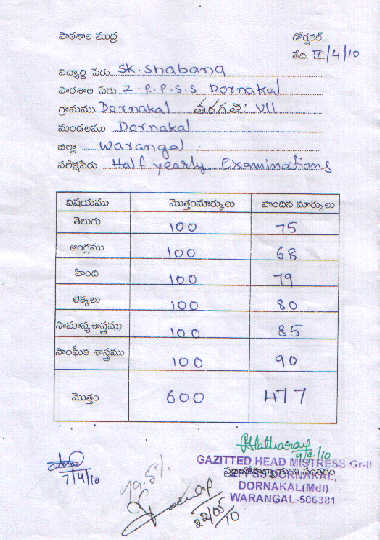 పాఠశాల ముద్ర
తేది IV/4/10
విద్యార్థి పేరు SK.Shabana
పాఠశాల పేరు Z.P.P.S.S Dornakal
గ్రామము Dornakal తరగతి: VII
మండలము Dornakal
జిల్లా Warangal
పరీక్షపేరు Half yearly Examinations
విషయము మొత్తంమార్కులు పొందిన మార్కులు
తెలుగు 100 75
ఆంగ్లము 100 68
హింది 100 79
లెక్కలు 100 80
సామాన్యశాస్త్రము 100 85
సాంఘీక శాస్త్రము 100 90
మొత్తం 600 477
7/4/10
9/4/10
GAZITTED HEAD MISTRESS Gr-II
DORNAKAL,
DORNAKAL(Mdl)
WARANGAL-506381